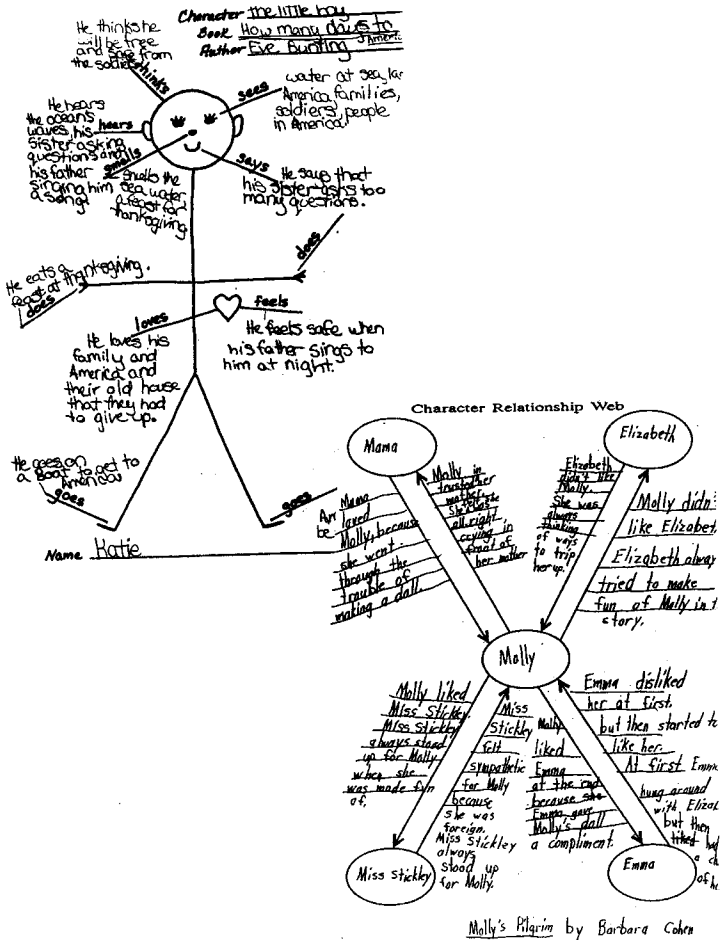 Character the little boy
Book How many days to
America
Author Eve Bunting
He thinks he
will be free
and safe from
the soldiers
thinks
sees
water at sea,
America, families,
soldiers, people
in America.
He hears
the ocean's
waves, his
sister asking
questions and
his father
singing him
a song.
hears
smells
smells the
sea water
a feast for
thanksgiving
says
He says that
his sister asks too
many questions.
does
He eats a
feast at thanksgiving.
does
loves
He loves his
family and
America and
their old house
that they had
to give up.
feels
He feels safe when
his father sings to
him at night.
He goes on
a Boat to get to
America
goes
goes
be
Name Katie
Character Relationship Web
Mama
Elizabeth
Mama
loved
Molly, because
she went
through the
trouble of
making a doll.
Molly in
trusted her
mother.
all right
crying in
front of
her mother
Elizabeth
didn't like
Molly.
She was
always
thinking
of ways
to trip
her up.
Molly didn'
like Elizabet
Elizabeth alway
tried to make
fun of Molly in t
story.
Molly
Molly liked
Miss Stickley.
Miss Stickley
always stood
up for Molly
when she
was made fun
of.
Miss
Stickley
felt
sympathetic
for Molly
because
she was
foreign.
Miss Stickley
always
stood up
for Molly.
Molly
liked
Emma
at the end
because she
Emma gave
Molly's doll
a compliment.
Emma disliked
her at first.
but then started to
like her.
At first Emma
hung around
with Elizab
but then
liked had
a ch
of h
Miss Stickley
Emma
Molly's Pilgrim by Barbara Cohen